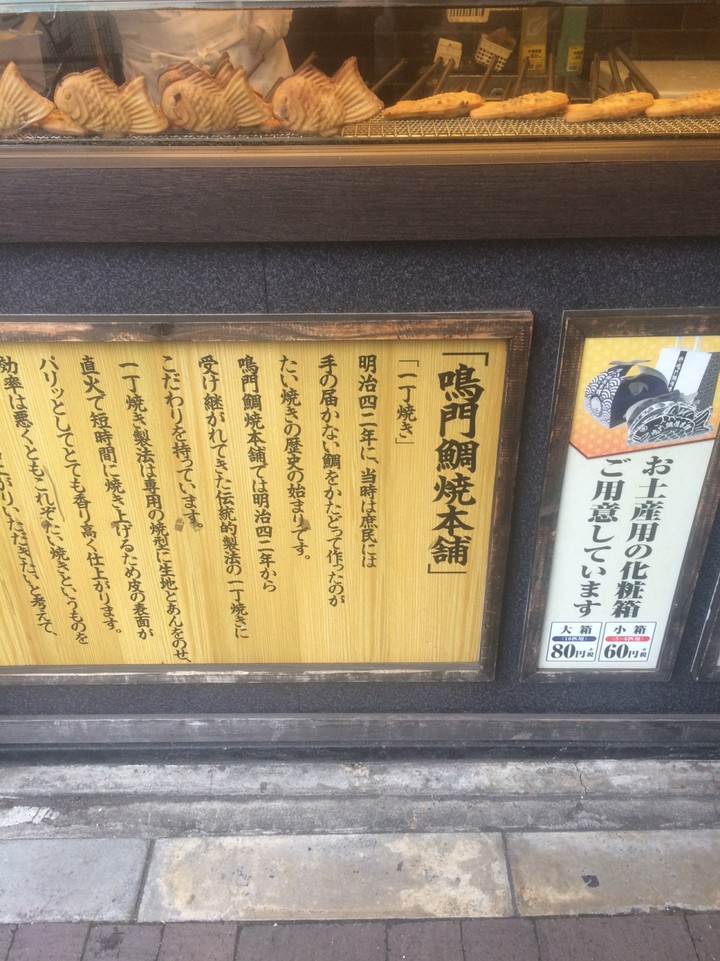 「鳴門鯛焼本舗」
「一丁焼き」
明治四二年に、当時は庶民には
手の届かない鯛をかたどって作ったのが
たい焼きの歴史の始まりです。
鳴門鯛焼本舗では明治四二年から
受け継がれてきた伝統的製法の一丁焼きに
こだわりを持っています。
一丁焼き製法は専用の焼型に生地とあんをのせ、
直火で短時間に焼き上げるため皮の表面が
パリッとしてとても香り高く仕上がります。
効率は悪くともこれぞたい焼きというものを
上がりいただきたいと考えて、
お土産用の化粧箱
ご用意しています
小箱
60円+税
大箱
80円+税